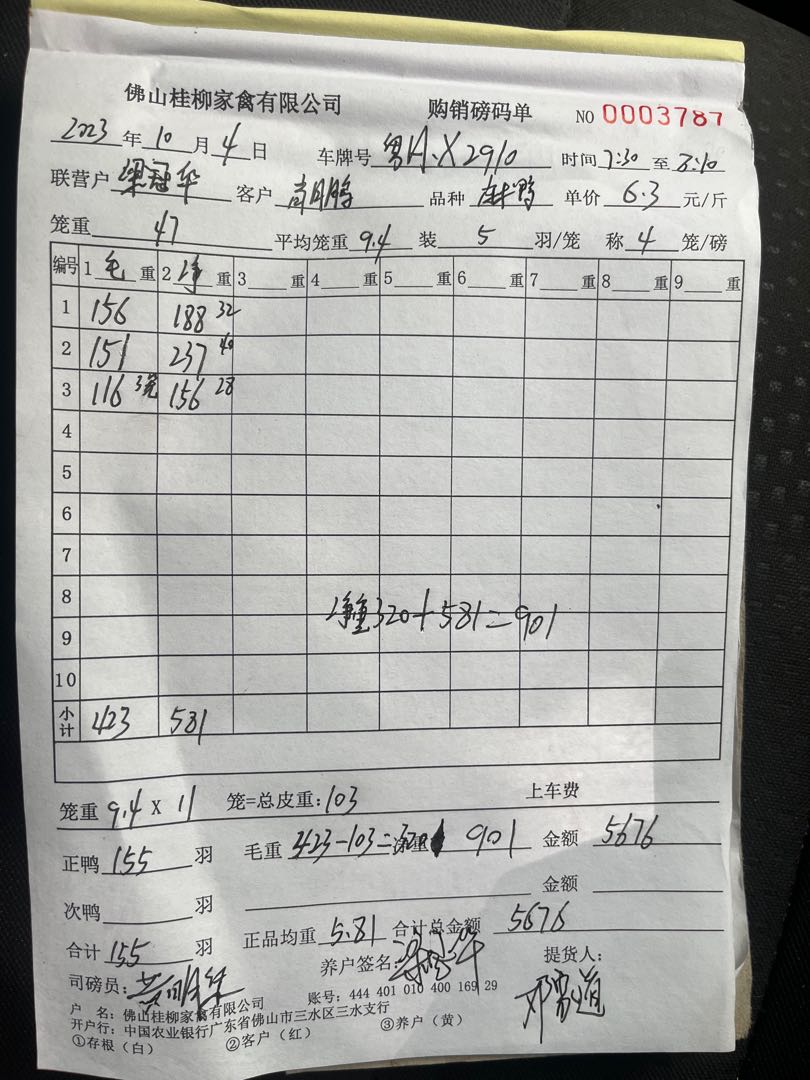 佛山桂柳家禽有限公司 购销磅码单 NO 0003787
2023年10月4日 车牌号 粤A·X2910 时间 7:30 至 8:10
联营户 梁冠华 客户 肖明鹏 品种 麻鸭 单价 6.3 元/斤
笼重 47 平均笼重 9.4 装 5 羽/笼 称 4 笼/磅
编号 1 毛 重 2 净 重 3 重 4 重 5 重 6 重 7 重 8 重 9 重
1 156 188 32
2 151 237 40
3 116 3笼 156 28
4
5
6
7
8
净重320+581=901
9
10
小计 423 581
笼重 9.4 X 11 笼=总皮重:103 上车费
正鸭 155 羽 毛重 423-103=320 净重 901 金额 5676
次鸭 羽 金额
合计 155 羽 正品均重 5.81 合计总金额 5676
司磅员: 养户签名: 提货人:
户 名:佛山桂柳家禽有限公司 账号: 444 401 010 400 169 29
开户行:中国农业银行广东省佛山市三水区三水支行
①存根(白) ②客户(红) ③养户(黄)